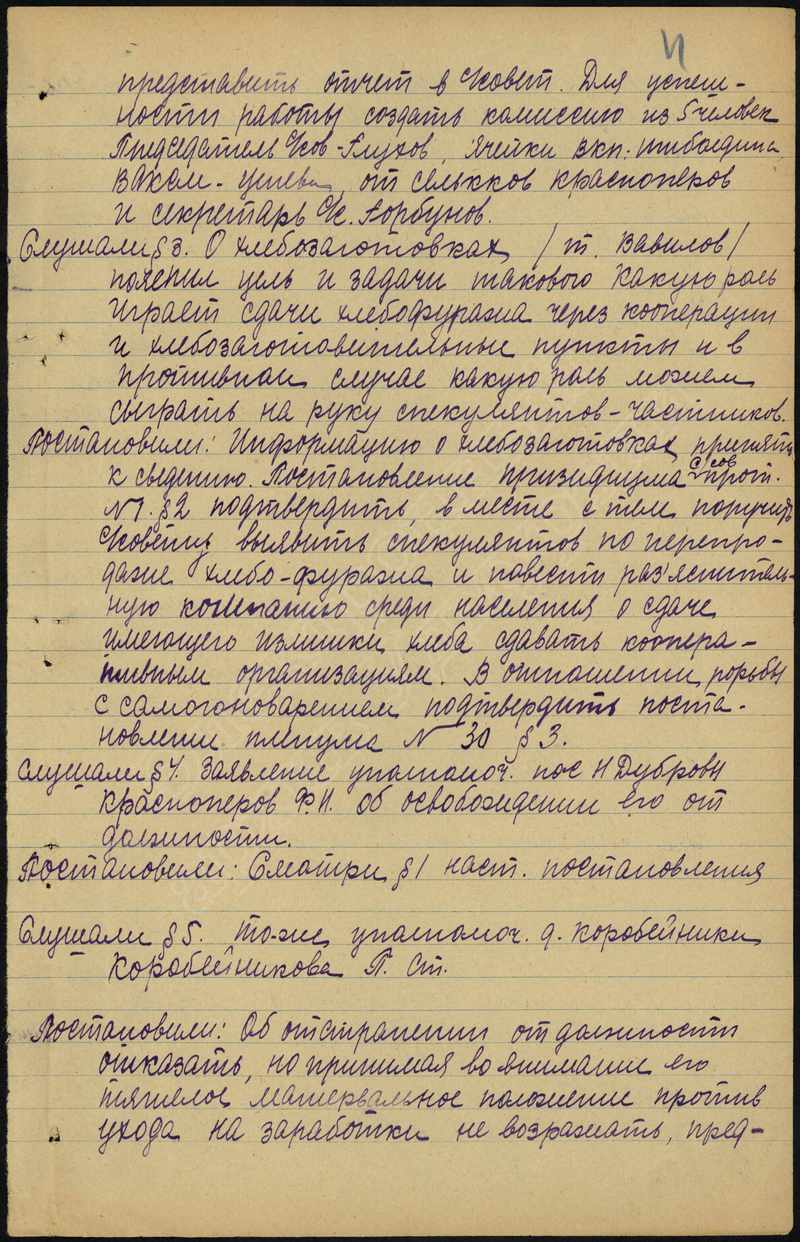 представить отчет в с/совет. Для успеш-
ности работы создать комиссию из 5 человек
Председатель с/сов - Глухов, ячейки ВКП.
ВЛКСМ - от селькков Красноперов
и секретарь с/с. Горбунов.
Слушали § 3. О хлебозаготовках /т. Вавилов/
пояснил цель и задачи такового какую роль
играет сдачи хлебофуража через кооперации
и хлебозаготовительные пункты и в
противном случае какую роль можем
сыграть на руку спекулянтов-частников.
Постановили: Информацию о хлебозаготовках принять
к сведению. Постановление призидиума с/сов прот.
№ 1. § 2 подтвердить, в месте с тем поручить
с/совету выявить спекулянтов по перепро-
даже хлебо-фуража и повести раз'яснитель-
ную компанию среди населения о сдаче
имеющего излишки хлеба сдавать коопера-
тивным организациям. В отношении борьбы
с самогоноварением подтвердить поста-
новлени пленума № 30 § 3.
Слушали § 4. Заявление уполномоч. пос Н Дубровы
Красноперов Ф.И. об освобождении его от
должности.
Постановили: Смотри § 1 наст. постановления
Слушали § 5. то-же уполномоч. д. Коробейники
Коробейникова П. Ст.
Постановили: Об отстранении от должности
отказать, но принимая во внимание его
тяжелое матерьяльное положение против
ухода на заработки не возражать, пред-